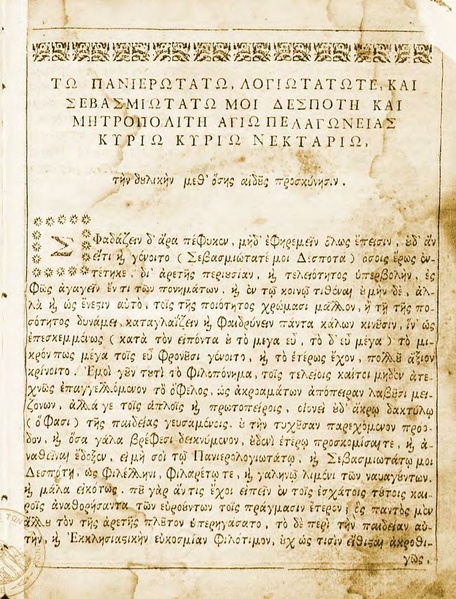 ΤΩ ΠΑΝΙΕΡΩΤΑΤΩ, ΛΟΓΙΩΤΑΤΩΤΕ, ΚΑΙ
ΣΕΒΑΣΜΙΩΤΑΤΩ ΜΟΙ ΔΕΣΠΟΤΗ ΚΑΙ
ΜΗΤΡΟΠΟΛΙΤΗ ΑΓΙΩ ΠΕΛΑΓΩΝΕΙΑΣ
ΚΥΡΙΩ ΚΥΡΙΩ ΝΕΚΤΑΡΙΩ,
τὴν δυλικὴν μεθ' ὅσης αἰδῦς προσκύνησιν.
ΣΦαδάζειν δ' ἄρα πέφυκεν, μηδ' ἐφηρεμεῖν ὅλως ἔπεισιν, ὐδ' ἂν
εἴ τι ϗ γένοιτο (Σεβασμιώτατέ μοι Δέσποτα) ὅσοις ἔρως ἐν
τέτηκε δι' ἀρετῆς περιυσίαν, ϗ τελειότητος ὑπερβολὴν, ἐς
φῶς ἀγαγεῖν ἔν τι τῶν πονημάτων, ϗ ἐν τῷ κοινῷ τιθέναι
λὰ ϗ ὡς ἔνεσιν αὐτὸ, τοῖς τῆς ποιότητος χρώμασι μᾶλλον, ἢ τῇ τῆς πο-
σότητος δυνάμει, καταγλαΐζειν ϗ φαιδρύνειν πάντα κάλων κινῦσιν, ἵν' ὡς
ἐπεσκεμμένως (κατὰ τὸν εἰπόντα ὐ τὸ μέγα εὖ, τὸ δ' εὖ μέγα) τὸ μι-
κρόν πως μέγα τοῖς εὖ φρονῦσι γένοιτο, ϗ, τὸ ἑτέρως ἔχον, πολλῦ ἄξιον
κρίνοιτο. Ἐμοὶ γῦν τυτὶ τὸ φιλοπόνημα, τοῖς τελείοις καίτοι μηδὲν ἀτε-
χνῶς ἐπαγγελλόμενον τὸ ὄφελος, ὡς ἀκροαμάτων ἀπόπειραν λαβῦσι μει-
ζόνων, ἀλλά γε τοῖς ἁπλοῖς ϗ πρωτοπείροις, οἱονεὶ ὐδ' ἄκρῳ δακτύλῳ
(ὅ φασι) τῆς παιδείας γευσαμένοις, ὐ τὴν τυχῦσαν παρεχόμενον πρόο-
δον, ϗ ὅσα γάλα βρέφεσι δεικνύμενον, ὐδενὶ ἑτέρῳ προσκομίσαι τε, ϗ ἀ-
ναθεῖναι ἔδοξεν, εἰ μή σοι τῷ Πανιερολογιωτάτῳ, ϗ Σεβασμιωτάτῳ μοι
Δεσπότῃ, ὡς φιλέλληνι, φιλαρέτῳ τε, ϗ γαληνῷ λιμένι τῶν ναυαγύντων,
ϗ μάλα εἰκότως. πῦ γὰρ ἄν τις ἔχοι εἰπεῖν ἐν τοῖς ἐσχάτοις τύτοις και-
ροῖς ἀναθορήσαντα τῶν εὑρόντων τοῖς πράγμασιν ἕτερον; ὃς παντὸς μὲν
ἄλλυ τὸν τῆς ἀρετῆς πλῦτον ὑπερηγάσατο, τὸ δὲ περὶ τὴν παιδείαν αὐ-
τὴν, ϗ Ἐκκλησιαστικὴν εὐκοσμίαν φιλότιμον, ὐχ ὥς τισιν εἴθισται ἀκροθι-
γῶς.